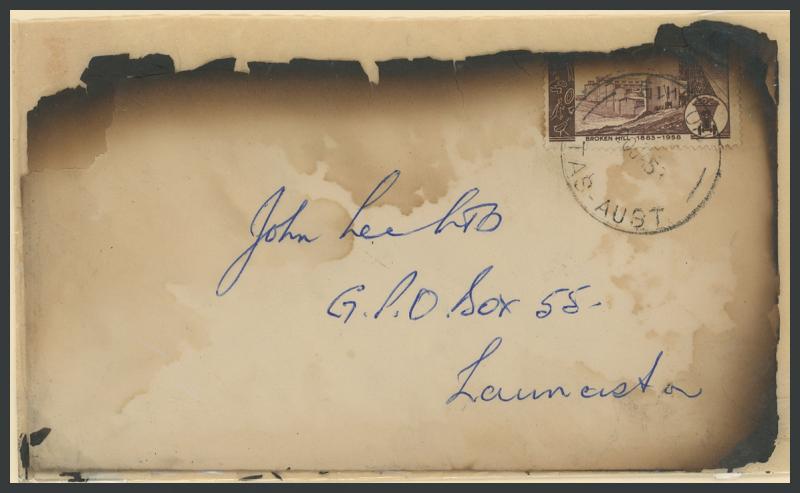 BROKEN HILL 1883-1958
TAS-AUST
John Lee LTD
G.P.O. Box 55-
Launceston